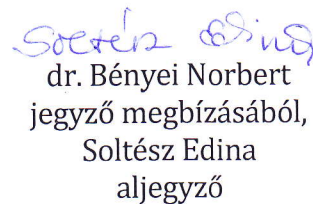 Soltész Edina
dr. Bényei Norbert
jegyző megbízásából,
Soltész Edina
aljegyző